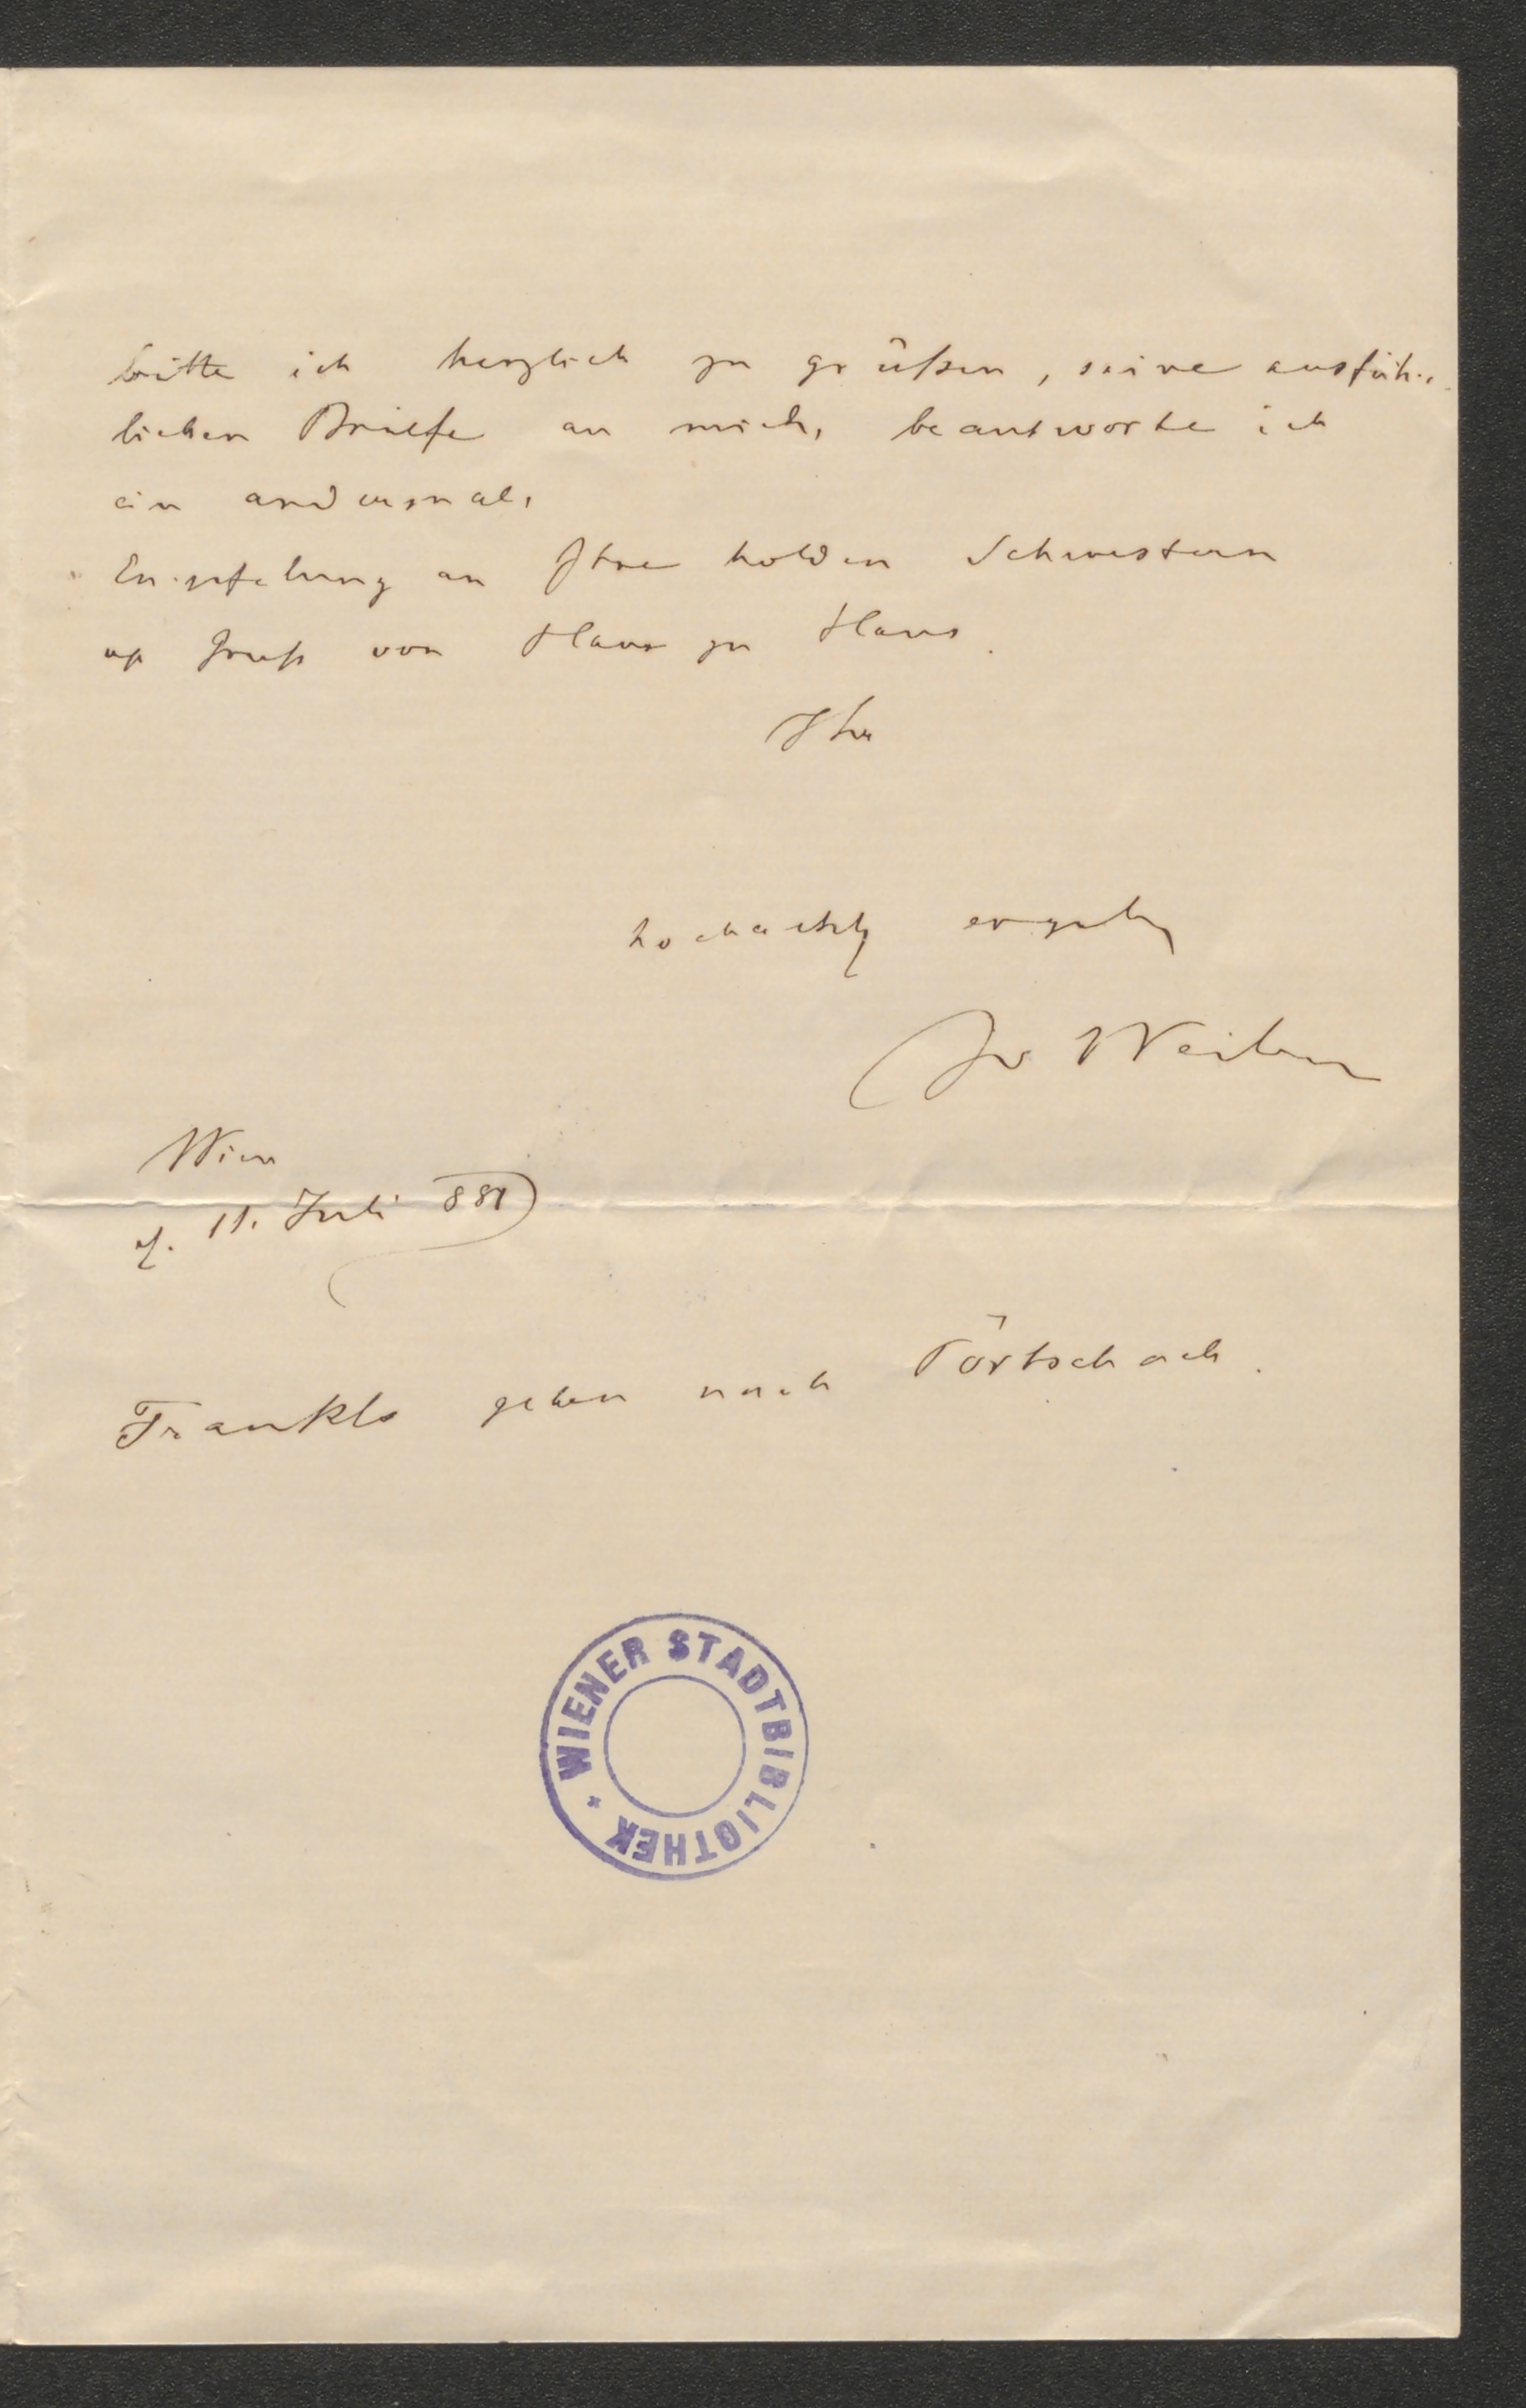 bitte ich herzlich zu grüßen, seine ausführ-
lichen Briefe an mich, beantworte ich
ein andermal.
Empfelung an Ihre holden Schwestern
Gruß von Haus zu Haus.
Ihr
hochachtg ergeb
Weilen
Wien
11. Juli 881
Frankls gehen nach Pörtschach.
WIENER STADTBIBLIOTHEK